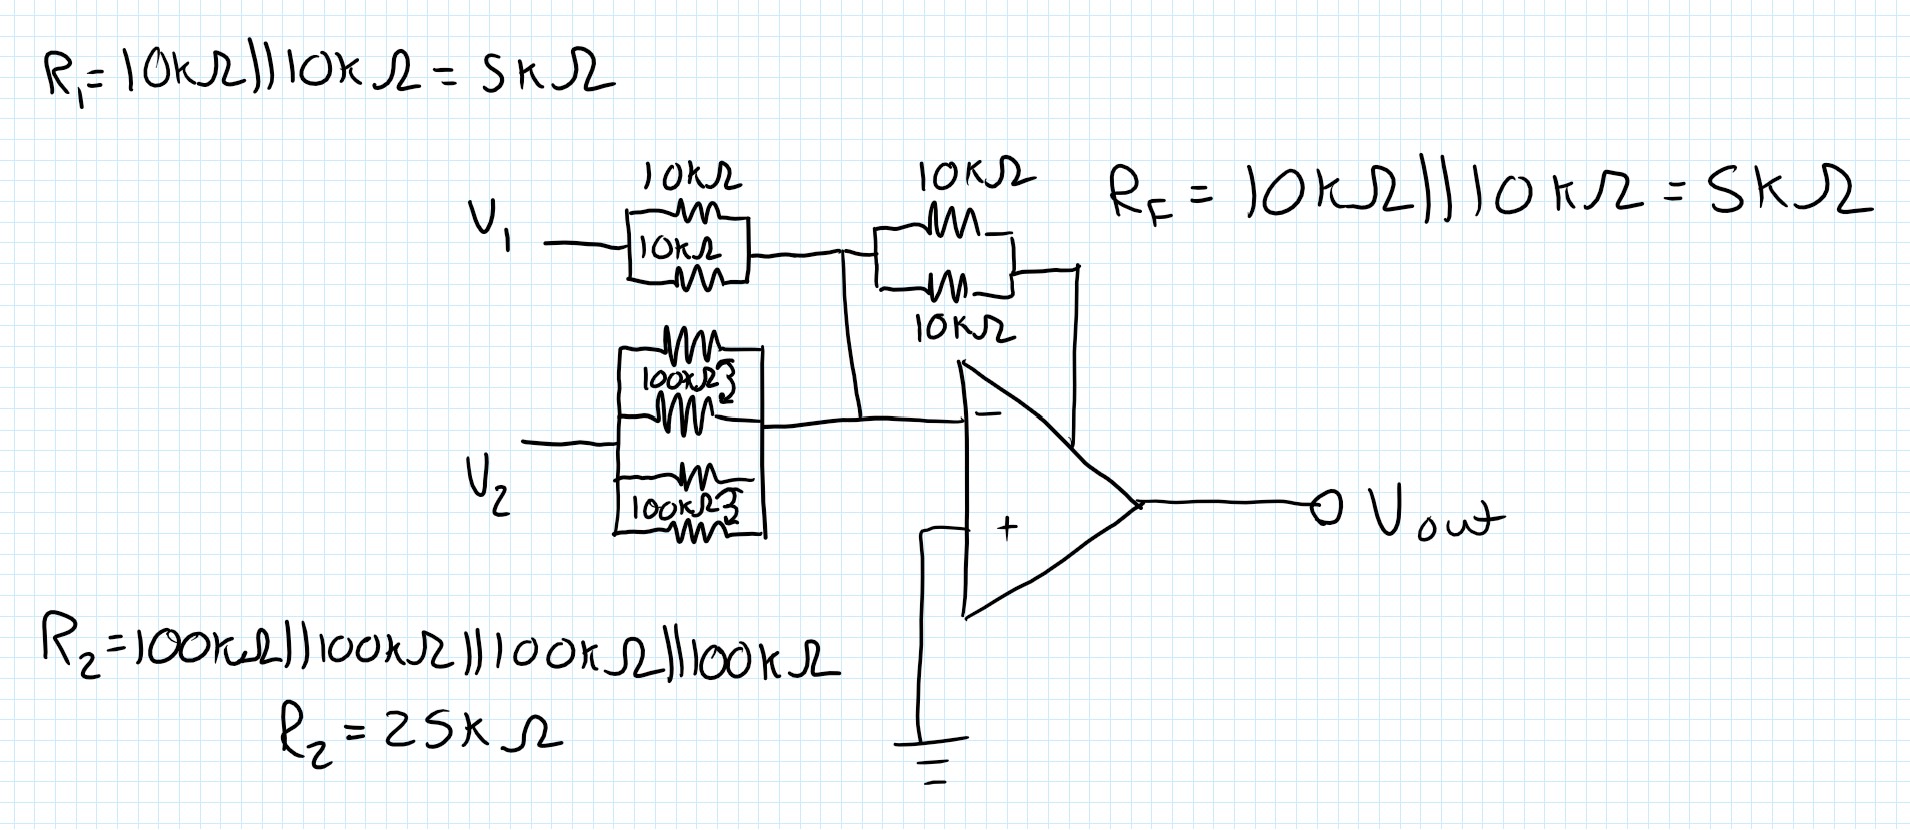 R₁=10kΩ||10kΩ=5kΩ
10kΩ
10kΩ
R_F=10kΩ||10kΩ=5kΩ
V₁
10kΩ
10kΩ
100kΩ
-
V₂
100kΩ
+
Vout
R₂=100kΩ||100kΩ||100kΩ||100kΩ
R₂=25kΩ